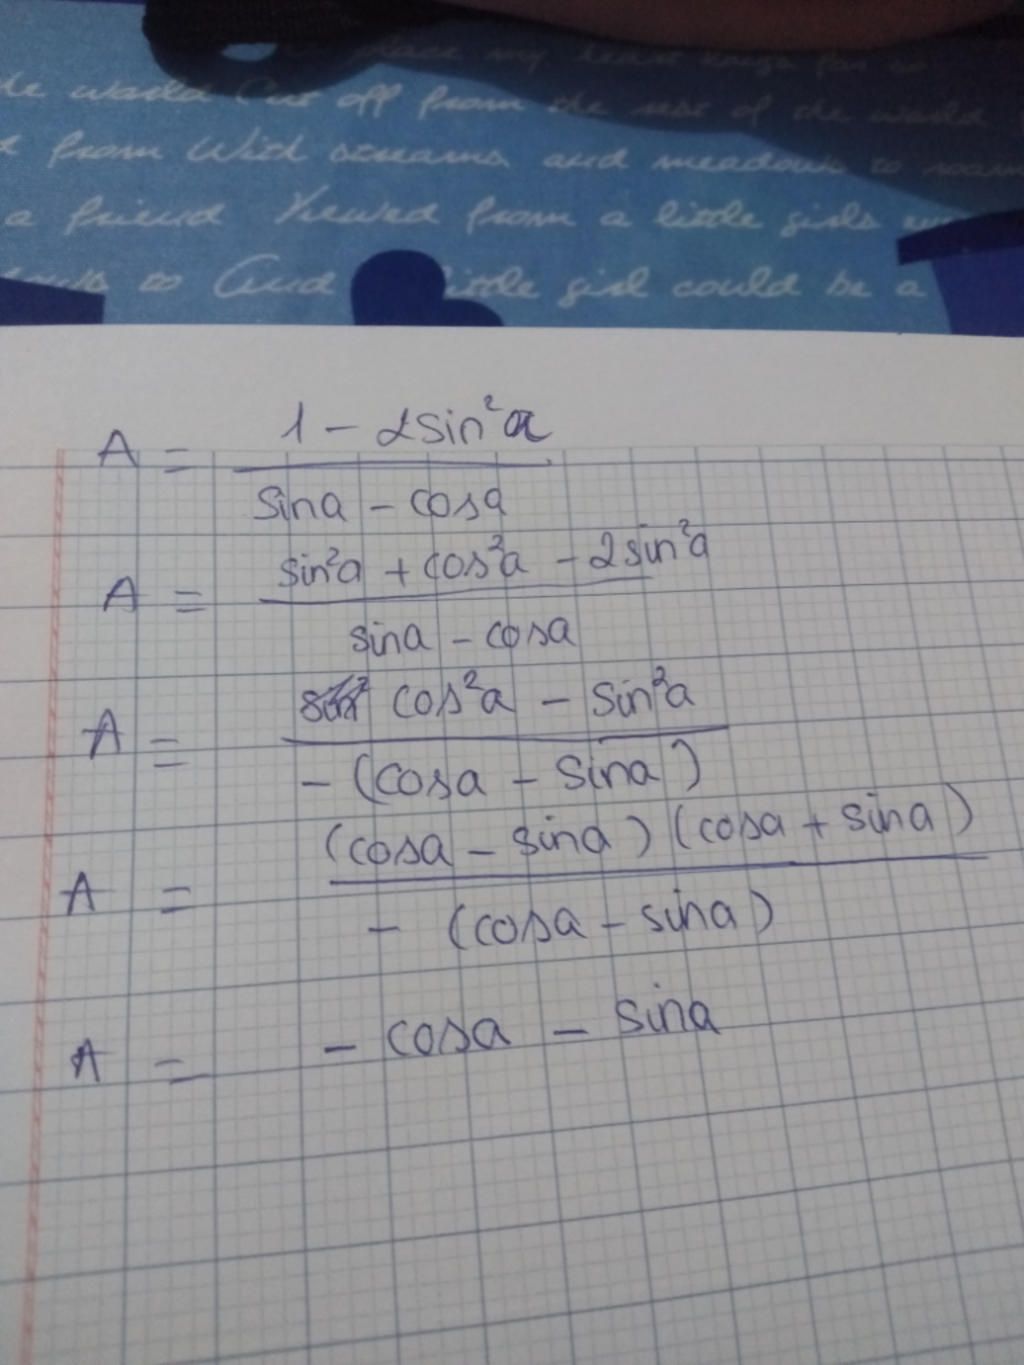 place my
the world Cut off from the rest of the world
from With streams and meadows to
a friend Viewed from a little girls
to And little girl could be a
A = 1 - 2sin²a
sina - cosa
A = sin²a + cos²a - 2sin²a
sina - cosa
A = cos²a - sin²a
- (cosa - sina)
A = (cosa - sina) (cosa + sina)
- (cosa - sina)
A = - cosa - sina